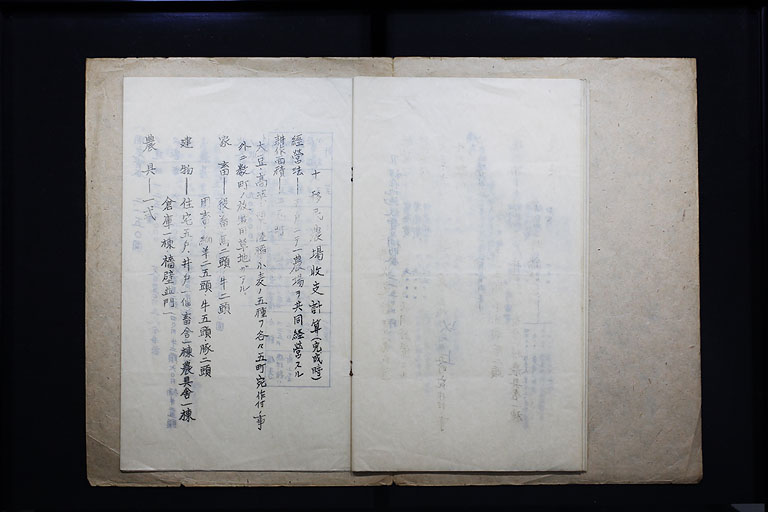 十、移民農場收支計算(完成時)
經營法―五戸ニテ一農場ヲ共同經營スル
耕作面積―
大豆・高粱・粟・陸稲・小麦ノ五種ヲ各々五町宛作付事
外ニ数町ノ放牧用草地ガアル
家畜―役畜馬二頭 牛二頭
用畜・緬羊二五頭 牛五頭・豚二頭
建物―住宅五戸、井戸一個 畜舎一棟 農具舎一棟
倉庫一棟 墻壁並門一
農具―一式